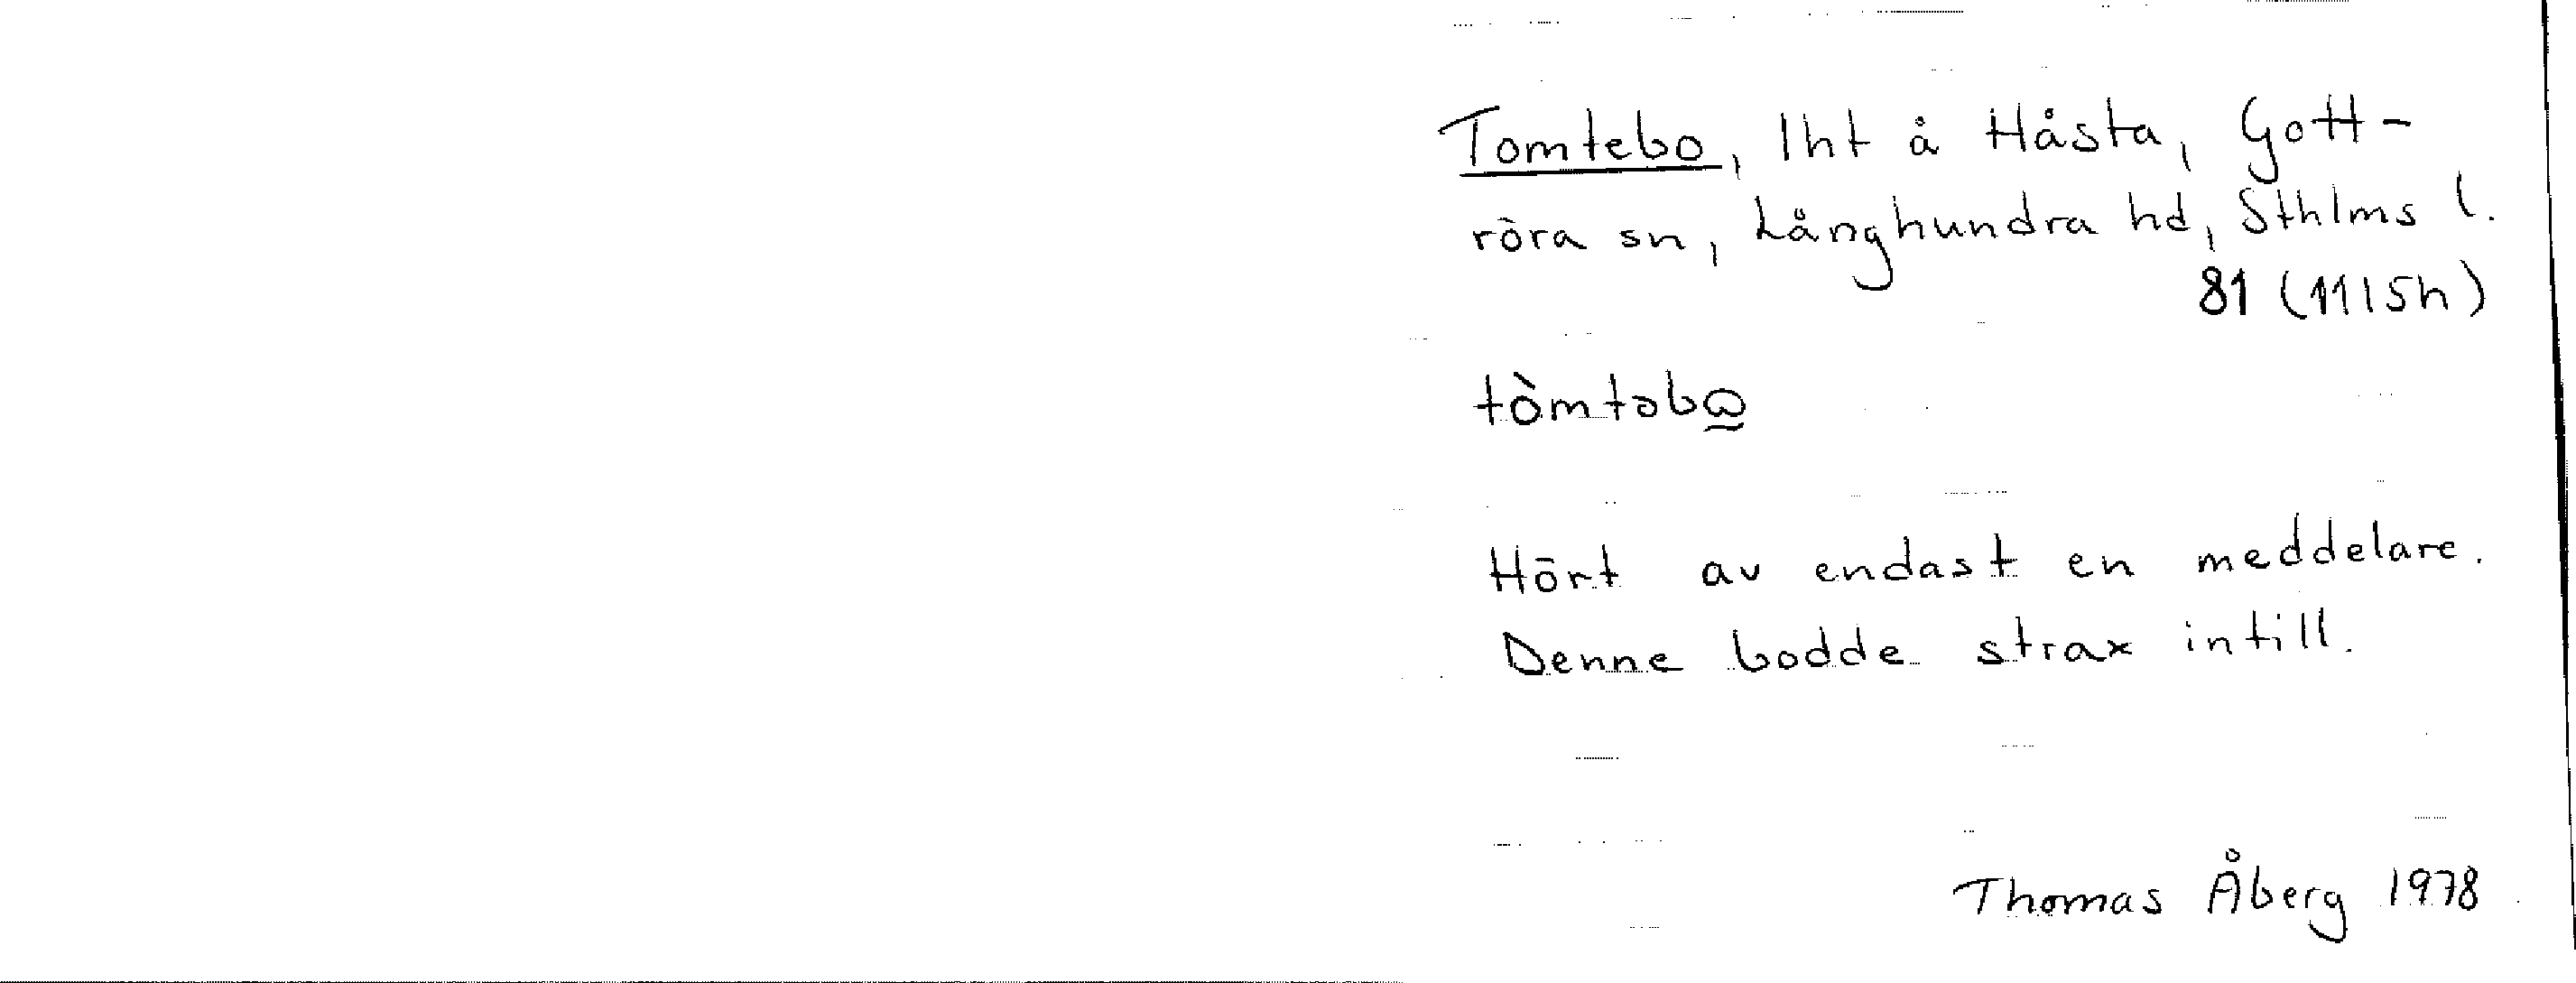 Tomtebo, lht å Håsta, Gott-
röra sn, Långhundra hd, Sthlms l.
81 (11I5h)
tòmtəbω̰
Hört av endast en meddelare.
Denne bodde strax intill.
Thomas Åberg 1978